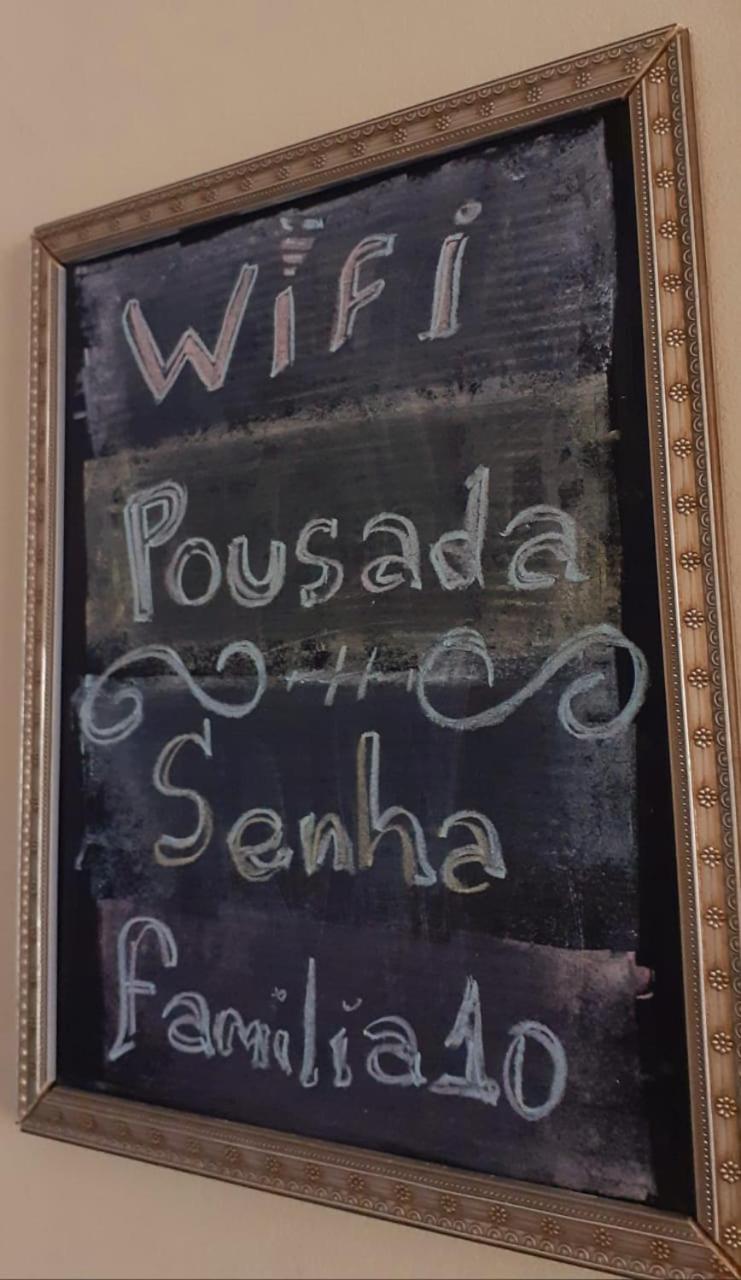 WiFi
Pousada
Senha
familia10